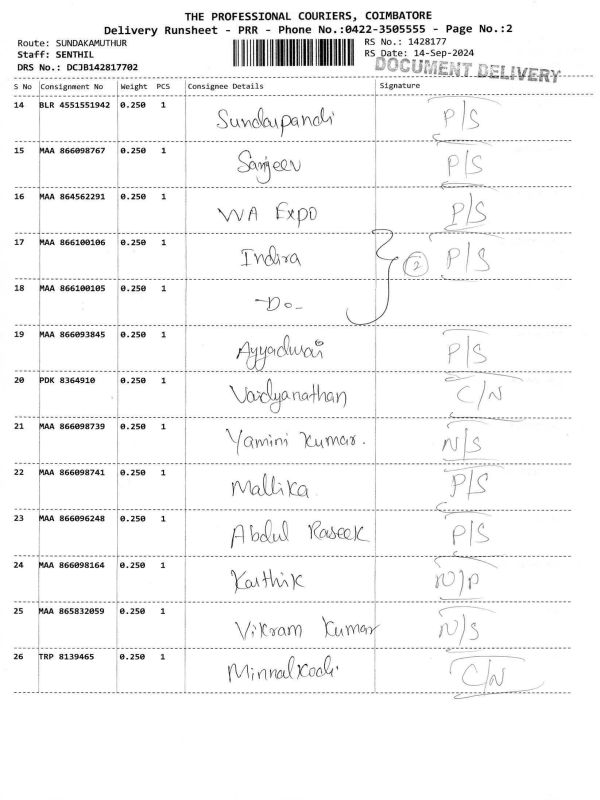 THE PROFESSIONAL COURIERS, COIMBATORE
Delivery Runsheet - PRR - Phone No.:0422-3505555 - Page No.:2
Route: SUNDAKAMUTHUR RS No.: 1428177
Staff: SENTHIL RS Date: 14-Sep-2024
DRS No.: DCJB142817702 DOCUMENT DELIVERY
S No Consignment No Weight PCS Consignee Details Signature
14 BLR 4551551942 0.250 1 Sundarpandi P/S
15 MAA 866098767 0.250 1 Sanjeev P/S
16 MAA 864562291 0.250 1 VVA Expo P/S
17 MAA 866100106 0.250 1 Indira (2) P/S
18 MAA 866100105 0.250 1 -Do-
19 MAA 866093845 0.250 1 Ayyadurai P/S
20 PDK 8364910 0.250 1 Vaidyanathan C/N
21 MAA 866098739 0.250 1 Yamini Kumar. N/S
22 MAA 866098741 0.250 1 Mallika P/S
23 MAA 866096248 0.250 1 Abdul Raseek P/S
24 MAA 866098164 0.250 1 Karthik N/P
25 MAA 865832059 0.250 1 Vikram Kumar N/S
26 TRP 8139465 0.250 1 Minnalkodi C/N